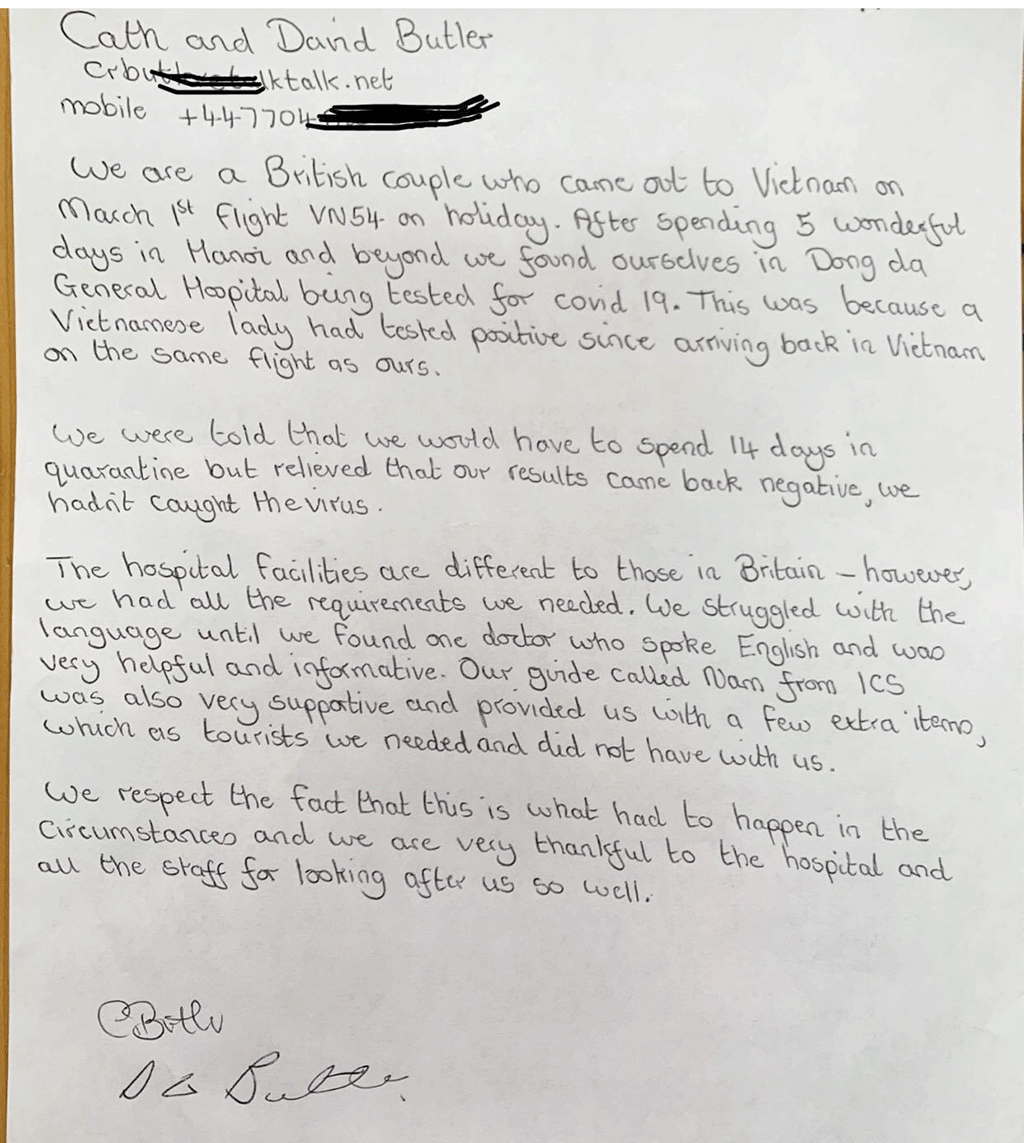 Cath and David Butler
crbu lktalk.net
mobile +447704
We are a British couple who came out to Vietnam on
March 1st flight VN54 on holiday. After spending 5 wonderful
days in Hanoi and beyond we found ourselves in Dong da
General Hospital being tested for covid 19. This was because a
Vietnamese lady had tested positive since arriving back in Vietnam
on the same flight as ours.
We were told that we would have to spend 14 days in
quarantine but relieved that our results came back negative, we
hadn't caught the virus.
The hospital facilities are different to those in Britain – however,
we had all the requirements we needed. We struggled with the
language until we found one doctor who spoke English and was
very helpful and informative. Our guide called Nam from ICS
was also very supportive and provided us with a few extra items,
which as tourists we needed and did not have with us.
We respect the fact that this is what had to happen in the
circumstances and we are very thankful to the hospital and
all the staff for looking after us so well.
CButler
D G Butler